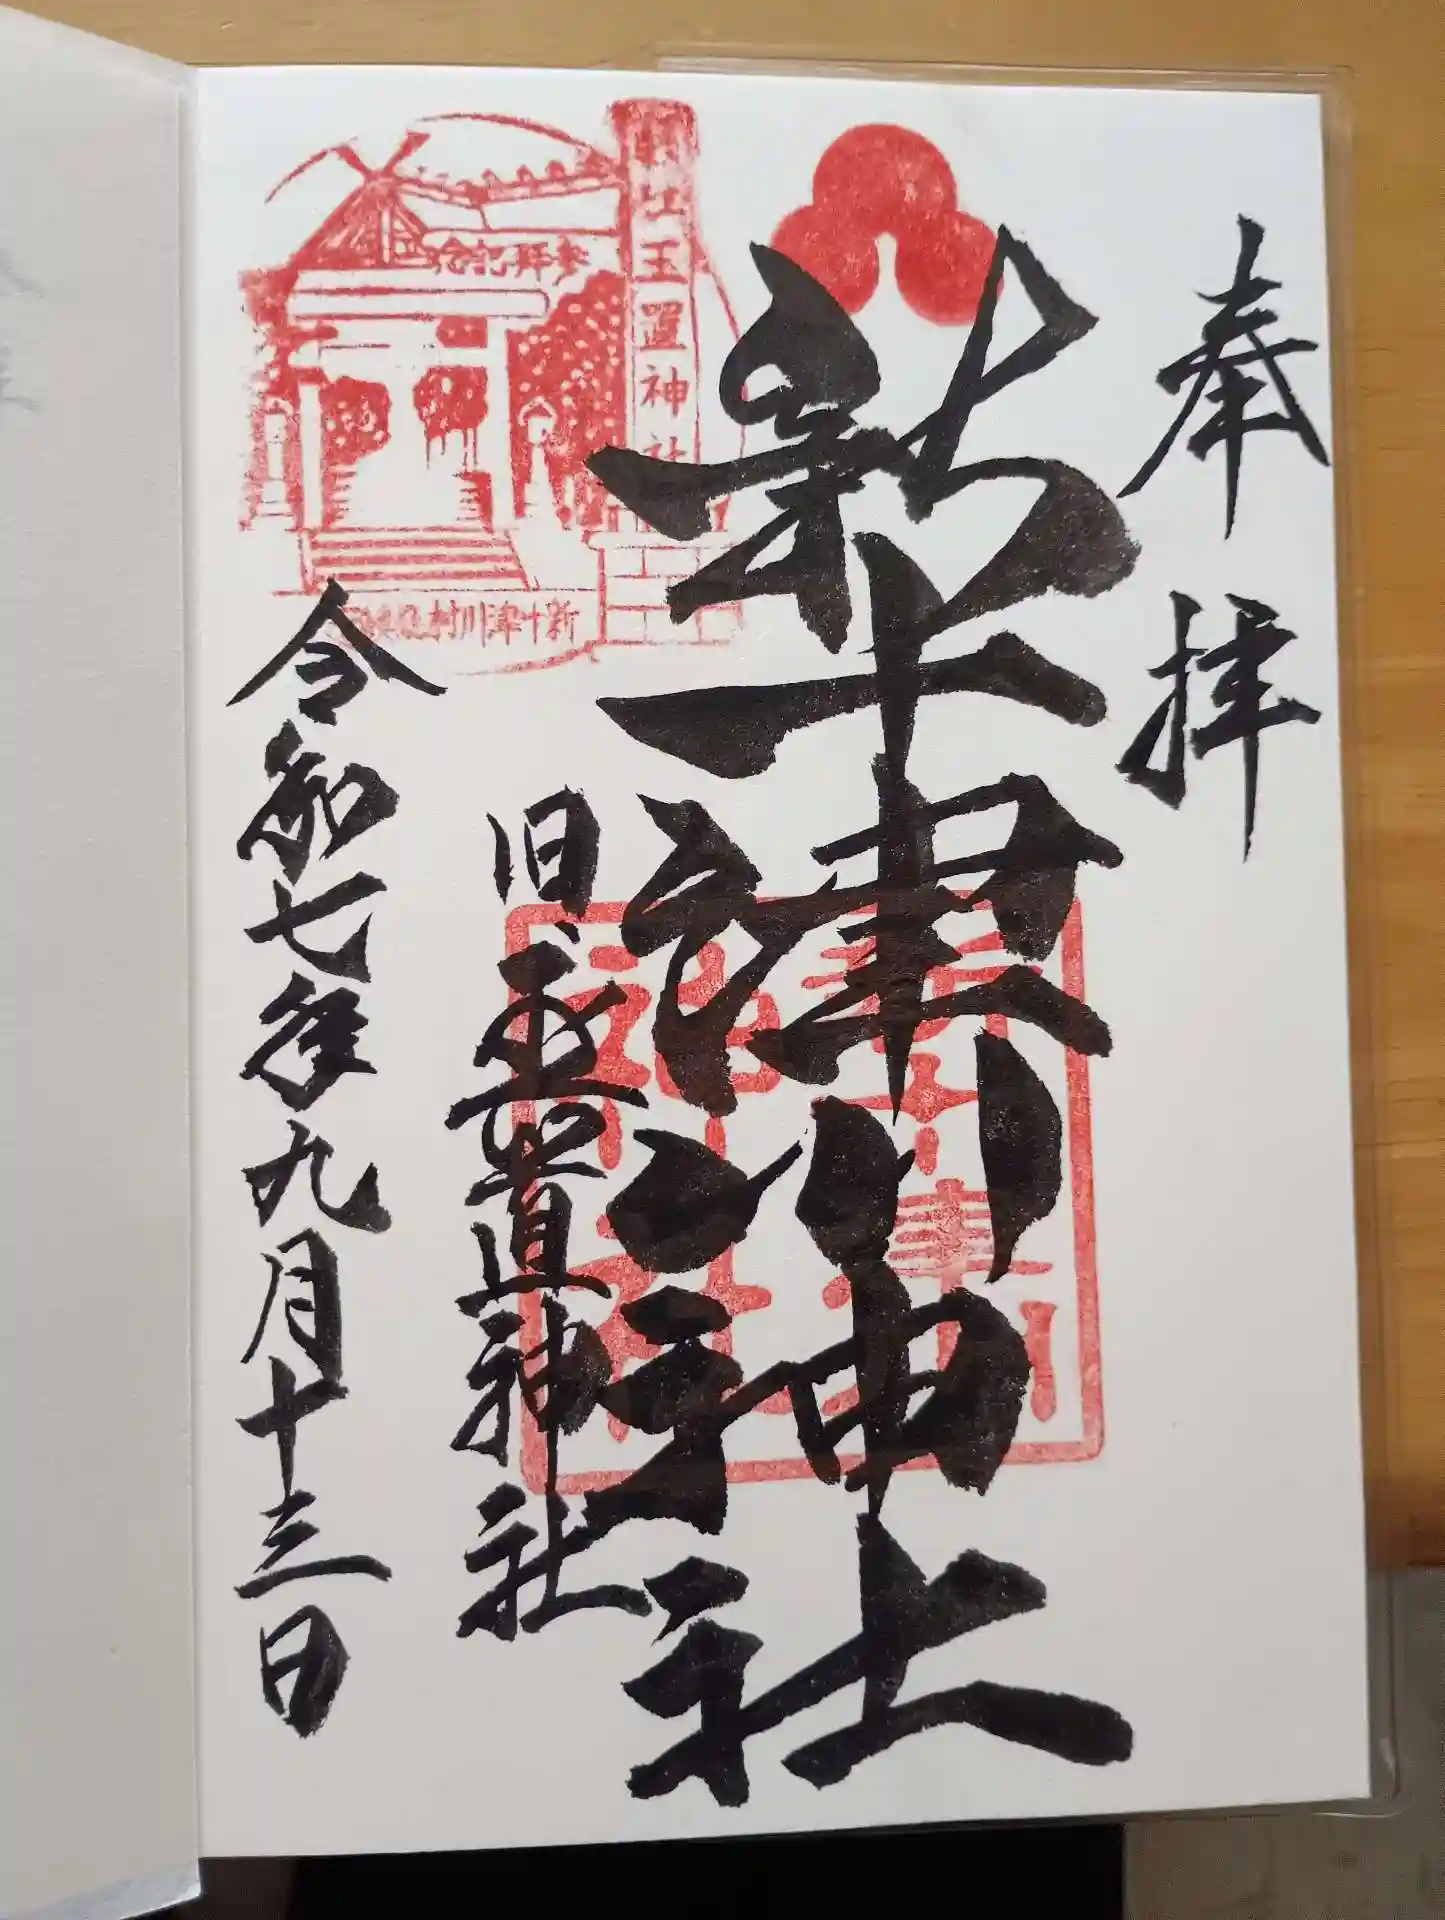 奉拝
新十津川神社
新十津川神社
旧玉置神社
令和七年九月十三日
玉置神社
参拝記念
新十津川村